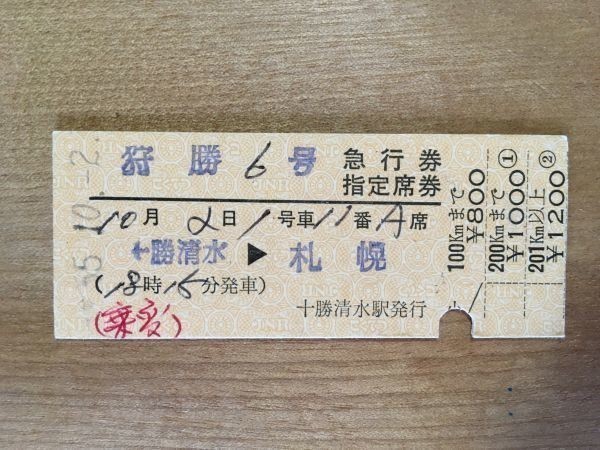 5.10.-2
狩勝6号 急行券
指定席券
10月2日1号車11番A席
十勝清水▶札幌
(18時15分発車)
(乗変)
十勝清水駅発行
100Kmまで
¥800
200Kmまで
¥1000 ①
201Km以上
¥1200 ②